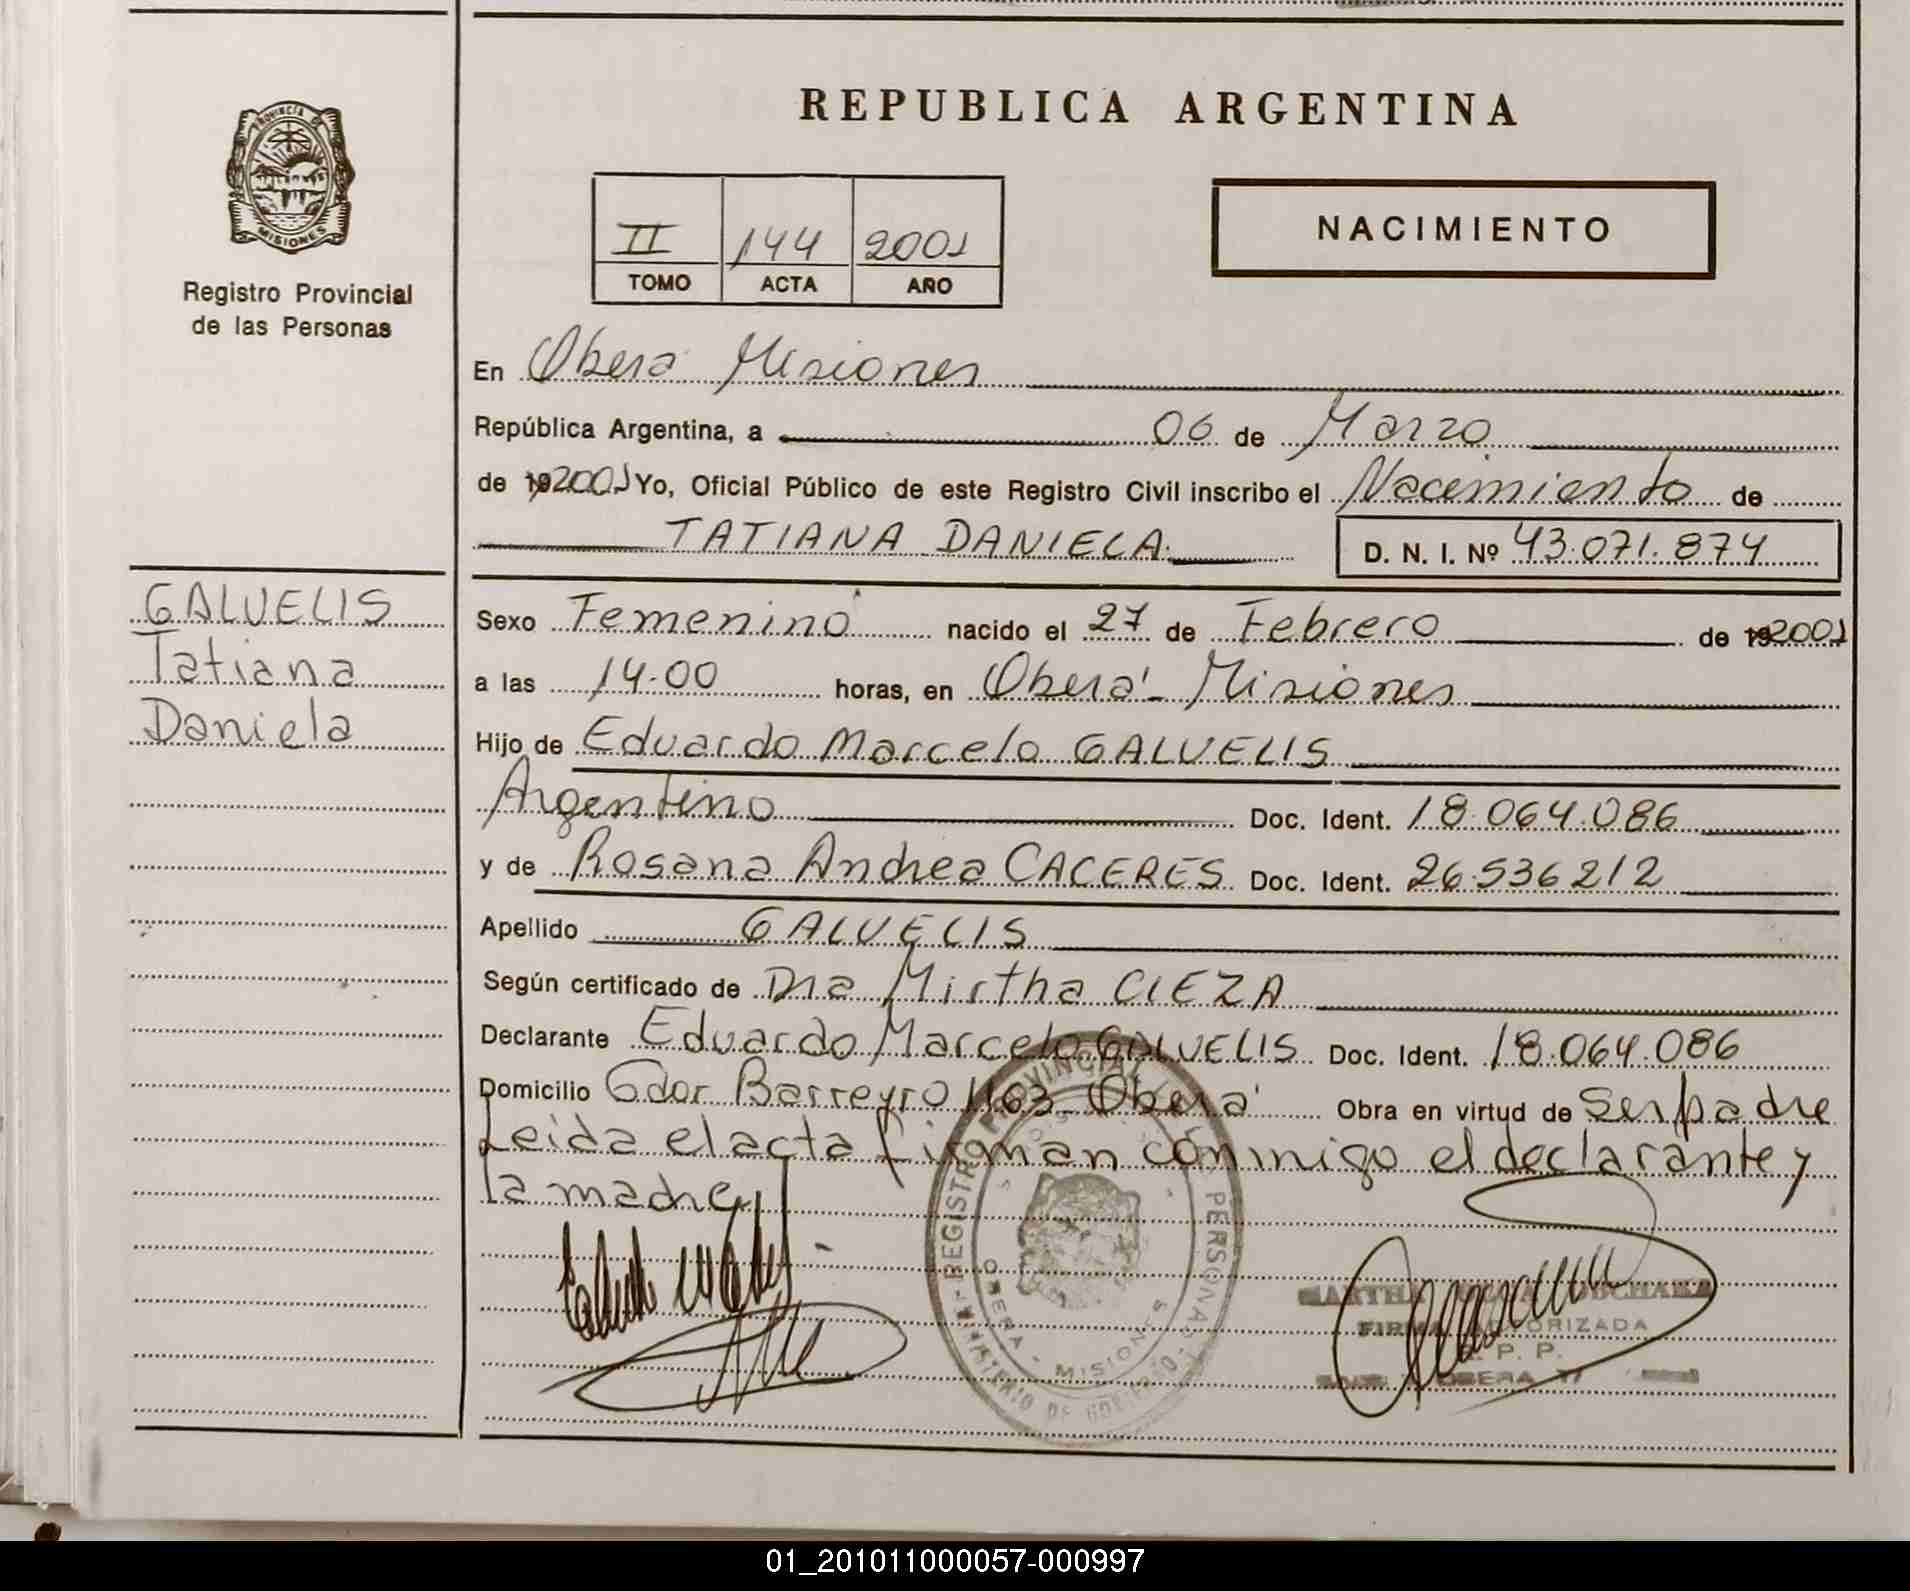 REPUBLICA ARGENTINA
PROVINCIA DE
MISIONES
Registro Provincial
de las Personas
II 144 2001
TOMO ACTA AÑO
NACIMIENTO
En Oberá Misiones
República Argentina, a 06 de Marzo
de 19 2001 Yo, Oficial Público de este Registro Civil inscribo el Nacimiento de
TATIANA DANIELA D. N. I. Nº 43.071.874
GALVELIS
Tatiana
Daniela
Sexo Femenino nacido el 27 de Febrero de 19 2001
a las 14.00 horas, en Oberá - Misiones
Hijo de Eduardo Marcelo GALVELIS
Argentino Doc. Ident. 18.064.086
y de Rosana Andrea CACERES Doc. Ident. 26.536212
Apellido GALVELIS
Según certificado de Dra Mirtha CIEZA
Declarante Eduardo Marcelo GALVELIS Doc. Ident. 18.064.086
Domicilio Gdor Barreyro 1163 Oberá Obra en virtud de Ser padre
Leida el acta firman conmigo el declarante y
la madre
REGISTRO PROVINCIAL DE LAS PERSONAS
OBERA - MISIONES
MINISTERIO DE GOBIERNO
MARTHA
FIRMA AUTORIZADA
R. P. P.
OBERA
01_201011000057-000997